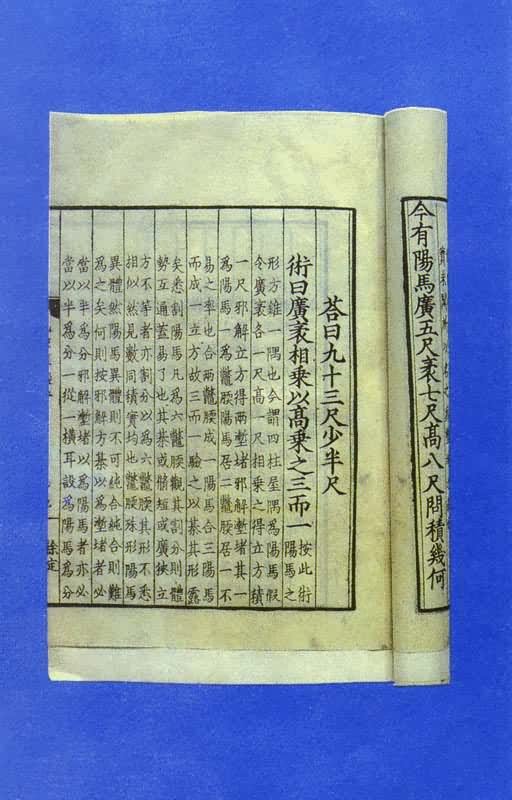 今有陽馬廣五尺袤七尺髙八尺問積幾何
荅曰九十三尺少半尺
術曰廣袤相乗以髙乗之三而一
按此術
陽馬之
形方錐一隅也今謂四柱屋隅爲陽馬假
令廣袤各一尺髙一尺相乗之得立方積
一尺邪解立方得兩壍堵邪解壍堵其一
爲陽馬一爲鼈腝陽馬居二鼈腝居一不
易之率也合兩鼈腝成一陽馬合三陽馬
而成一立方故三而一驗之以棊其形露
矣悉割陽馬凡爲六鼈腝觀其割分則體
勢互通蓋易了也其棊或脩短或廣狹立
方不等者亦割分以爲六鼈腝其形不悉
相似然見數同積實均也鼈腝殊形陽馬
異體然陽馬異體則不可純合純合則難
爲之矣何則按邪解方棊以爲壍堵者必
當以半爲分邪解壍堵以爲陽馬者亦必
當以半爲分一從一橫耳設爲陽馬爲分
徐定